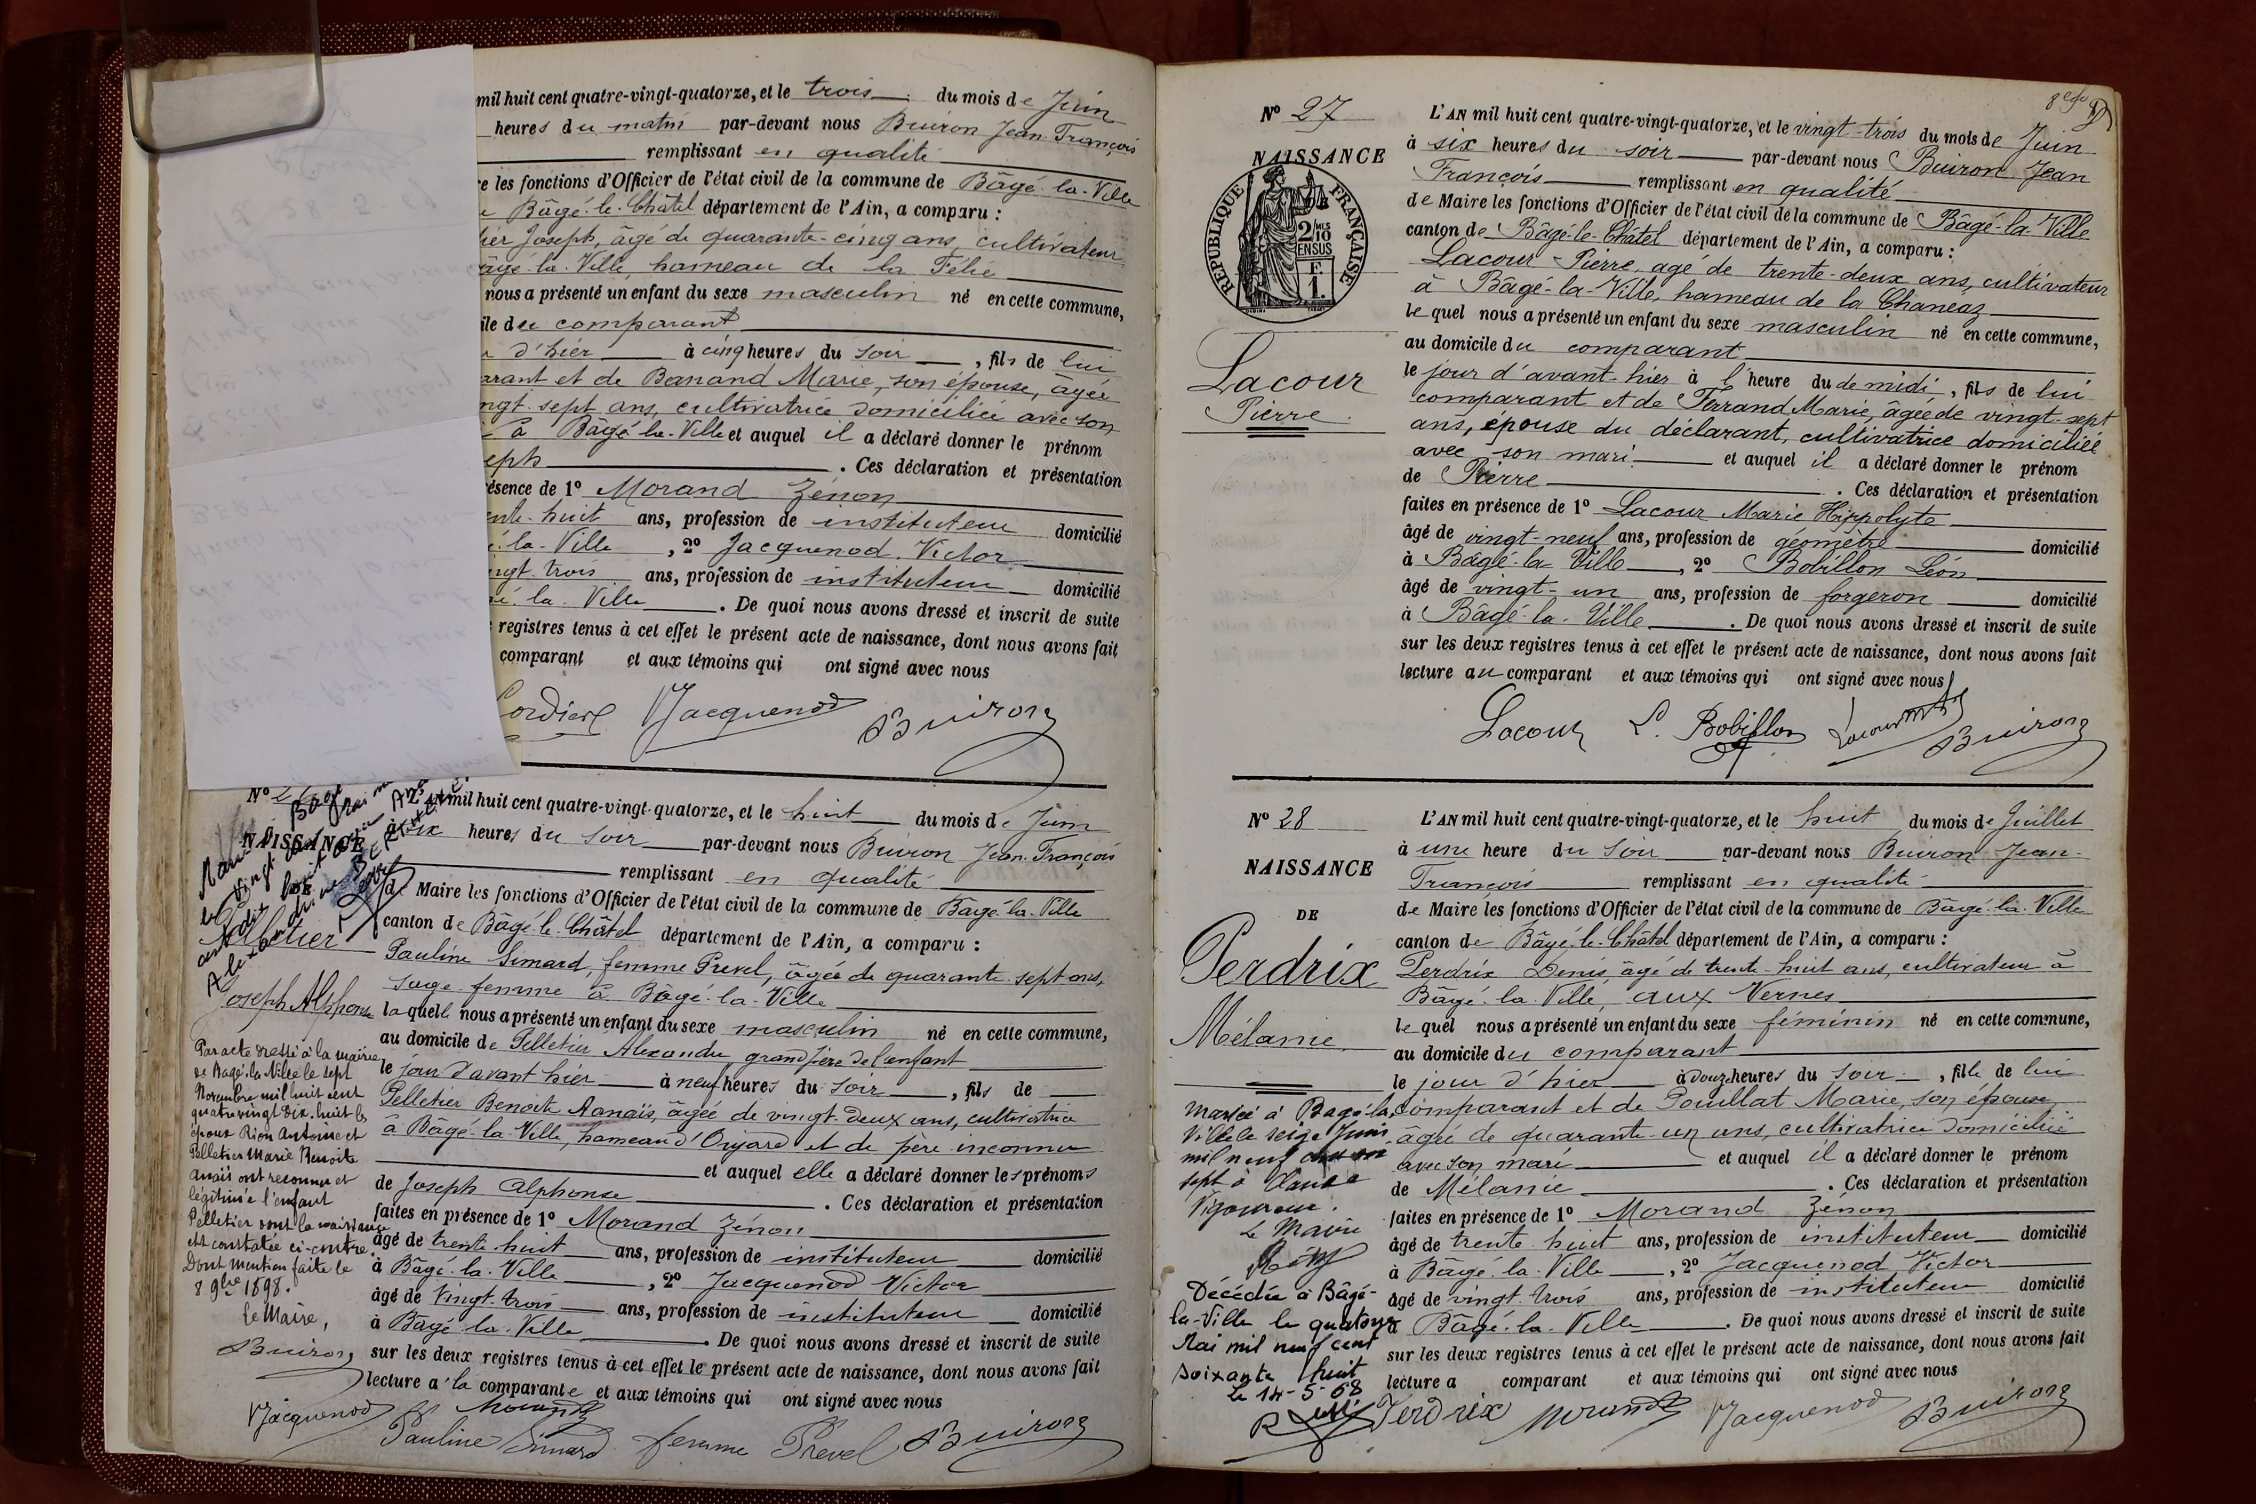 mil huit cent quatre-vingt-quatorze, et le trois du mois de Juin
heures du matin par-devant nous Buiron Jean-François
remplissant en qualité
re les fonctions d'Officier de l'état civil de la commune de Bâgé-la-Ville
Bâgé-le-Châtel département de l'Ain, a comparu :
ier Joseph, âgé de quarante-cinq ans, cultivateur
âgé-la-Ville, hameau de la Félie
nous a présenté un enfant du sexe masculin né en cette commune,
ile du comparant
d'hier à cinq heures du soir, fils de lui
arant et de Banand Marie, son épouse, âgée
ngt-sept ans, cultivatrice domiciliée avec son
à Bâgé-la-Ville et auquel il a déclaré donner le prénom
eph. Ces déclaration et présentation
ésence de 1º Morand Zénon
ente-huit ans, profession de instituteur domicilié
-la-Ville, 2º Jacquenod Victor
ngt-trois ans, profession de instituteur domicilié
é-la-Ville. De quoi nous avons dressé et inscrit de suite
registres tenus à cet effet le présent acte de naissance, dont nous avons fait
comparant et aux témoins qui ont signé avec nous
Cordier Jacquenod Buiron
Nº
NAISSANCE
DE
Pelletier
Joseph Alphonse
Par acte dressé à la mairie
de Bagé-la-Ville le sept
Novembre mil huit cent
quatre vingt dix-huit les
époux Rion Antoine et
Pelletier Marie Benoite
Anaïs ont reconnu et
légitimé l'enfant
Pelletier dont la naissance
est constatée ci-contre.
Dont mention faite le
8 9bre 1898.
Le Maire,
Buiron
L'AN mil huit cent quatre-vingt-quatorze, et le huit du mois de Juin
à six heures du soir par-devant nous Buiron Jean-François
remplissant en qualité
de Maire les fonctions d'Officier de l'état civil de la commune de Bâgé-la-Ville
canton de Bâgé-le-Châtel département de l'Ain, a comparu :
Pauline Simard, femme Prevel, âgée de quarante-sept ans,
sage-femme à Bâgé-la-Ville
laquelle nous a présenté un enfant du sexe masculin né en cette commune,
au domicile de Pelletier Alexandre grand père de l'enfant
le jour d'avant hier à neuf heures du soir, fils de
Pelletier Benoite Aanaïs, âgée de vingt-deux ans, cultivatrice
à Bâgé-la-Ville, hameau d'Onjard et de père inconnu
et auquel elle a déclaré donner les prénoms
de Joseph Alphonse. Ces déclaration et présentation
faites en présence de 1º Morand Zénon
âgé de trente-huit ans, profession de instituteur domicilié
à Bâgé-la-Ville, 2º Jacquenod Victor
âgé de vingt-trois ans, profession de instituteur domicilié
à Bâgé-la-Ville. De quoi nous avons dressé et inscrit de suite
sur les deux registres tenus à cet effet le présent acte de naissance, dont nous avons fait
lecture à la comparante et aux témoins qui ont signé avec nous
Jacquenod Morand
Pauline Simard femme Prevel Buiron
Nº 27
NAISSANCE
REPUBLIQUE FRANÇAISE
2/10
EN SUS
F.
1.
Lacour
Pierre.
L'AN mil huit cent quatre-vingt-quatorze, et le vingt-trois du mois de Juin
à six heures du soir par-devant nous Buiron Jean
François remplissant en qualité
de Maire les fonctions d'Officier de l'état civil de la commune de Bâgé-la-Ville
canton de Bâgé-le-Châtel département de l'Ain, a comparu :
Lacour Pierre, agé de trente-deux ans, cultivateur
à Bâgé-la-Ville, hameau de la Chaneaz
lequel nous a présenté un enfant du sexe masculin né en cette commune,
au domicile du comparant
le jour d'avant-hier à l'heure du de midi, fils de lui
comparant et de Ferrand Marie, âgée de vingt-sept
ans, épouse du déclarant, cultivatrice domiciliée
avec son mari et auquel il a déclaré donner le prénom
de Pierre. Ces déclaration et présentation
faites en présence de 1º Lacour Marie Hippolyte
âgé de vingt-neuf ans, profession de géomètre domicilié
à Bâgé-la-Ville, 2º Bobillon Léon
âgé de vingt-un ans, profession de forgeron domicilié
à Bâgé-la-Ville. De quoi nous avons dressé et inscrit de suite
sur les deux registres tenus à cet effet le présent acte de naissance, dont nous avons fait
lecture au comparant et aux témoins qui ont signé avec nous
Lacour L. Bobillon Lacour Buiron
Nº 28
NAISSANCE
DE
Perdrix
Mélanie
Mariée à Bagé-la-
Ville le seize Juin
mil neuf cent
sept à Claude
Vigoureux.
Le Maire
Décédée à Bâgé-
la-Ville le quatorze
Mai mil neuf cent
soixante huit
Le 14-5-68
L'AN mil huit cent quatre-vingt-quatorze, et le huit du mois de Juillet
à une heure du soir par-devant nous Buiron Jean-
François remplissant en qualité
de Maire les fonctions d'Officier de l'état civil de la commune de Bâgé-la-Ville
canton de Bâgé-le-Châtel département de l'Ain, a comparu :
Perdrix Denis âgé de trente-huit ans, cultivateur à
Bâgé-la-Ville, aux Vernes
lequel nous a présenté un enfant du sexe féminin né en cette commune,
au domicile du comparant
le jour d'hier à douze heures du soir, fille de lui
comparant et de Pouillat Marie, son épouse,
âgée de quarante-un ans, cultivatrice domiciliée
avec son mari et auquel il a déclaré donner le prénom
de Mélanie. Ces déclaration et présentation
faites en présence de 1º Morand Zénon
âgé de trente-huit ans, profession de instituteur domicilié
à Bâgé-la-Ville, 2º Jacquenod Victor
âgé de vingt-trois ans, profession de instituteur domicilié
à Bâgé-la-Ville. De quoi nous avons dressé et inscrit de suite
sur les deux registres tenus à cet effet le présent acte de naissance, dont nous avons fait
lecture a comparant et aux témoins qui ont signé avec nous
Perdrix Morand Jacquenod Buiron